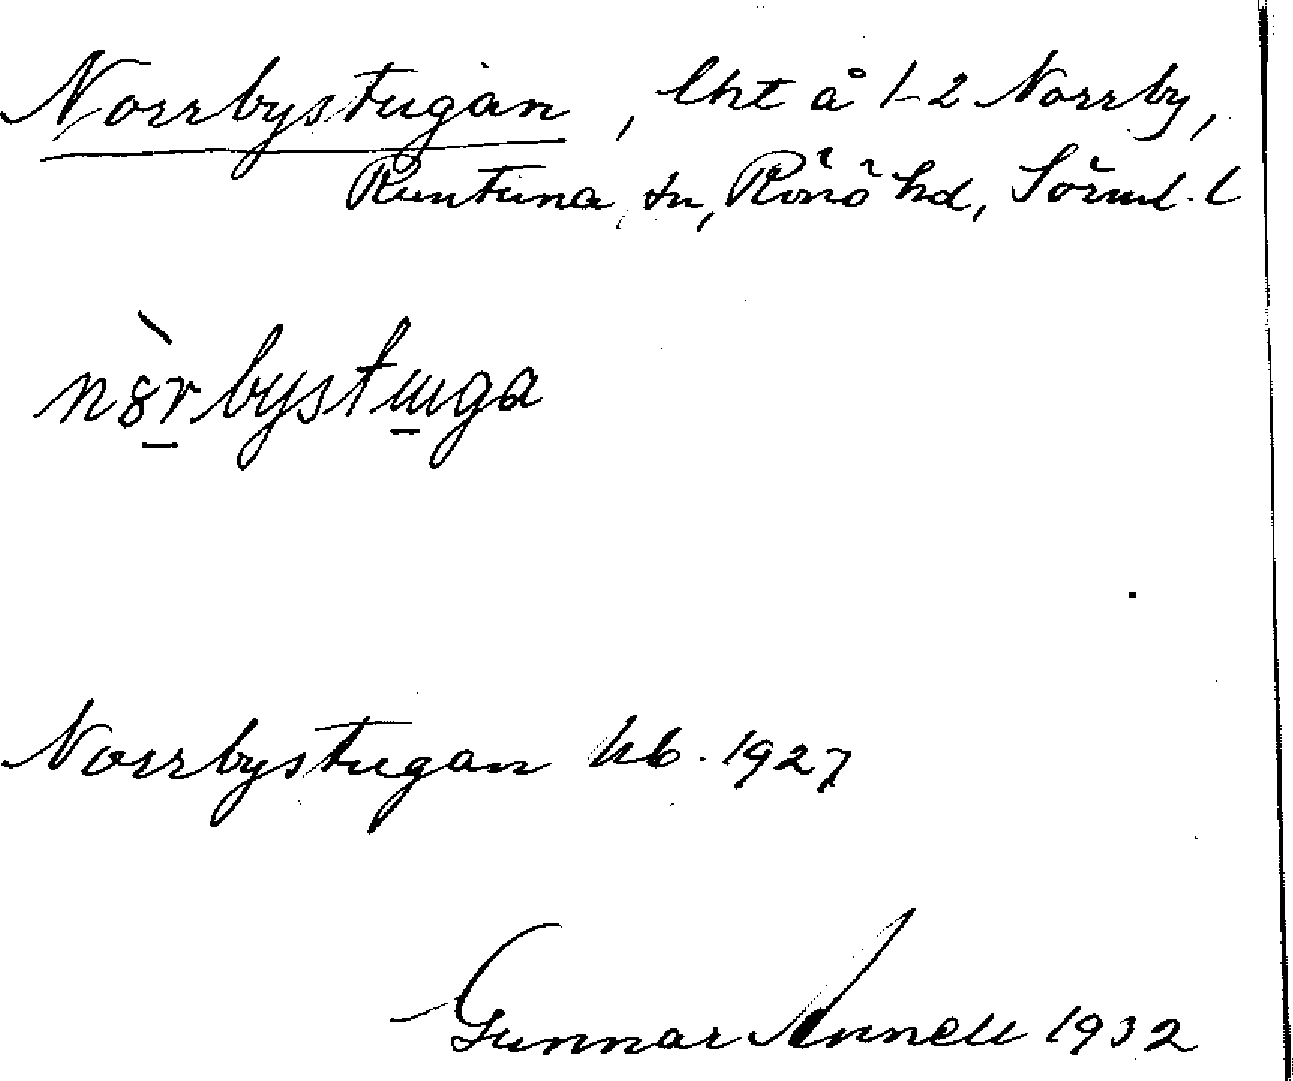 Norrbystugan, lht å 1-2 Norrby,
Runtuna sn, Rönö hd, Sörml. l
nòrbystuga
Norrbystugan kb. 1927
Gunnar Annell 1932